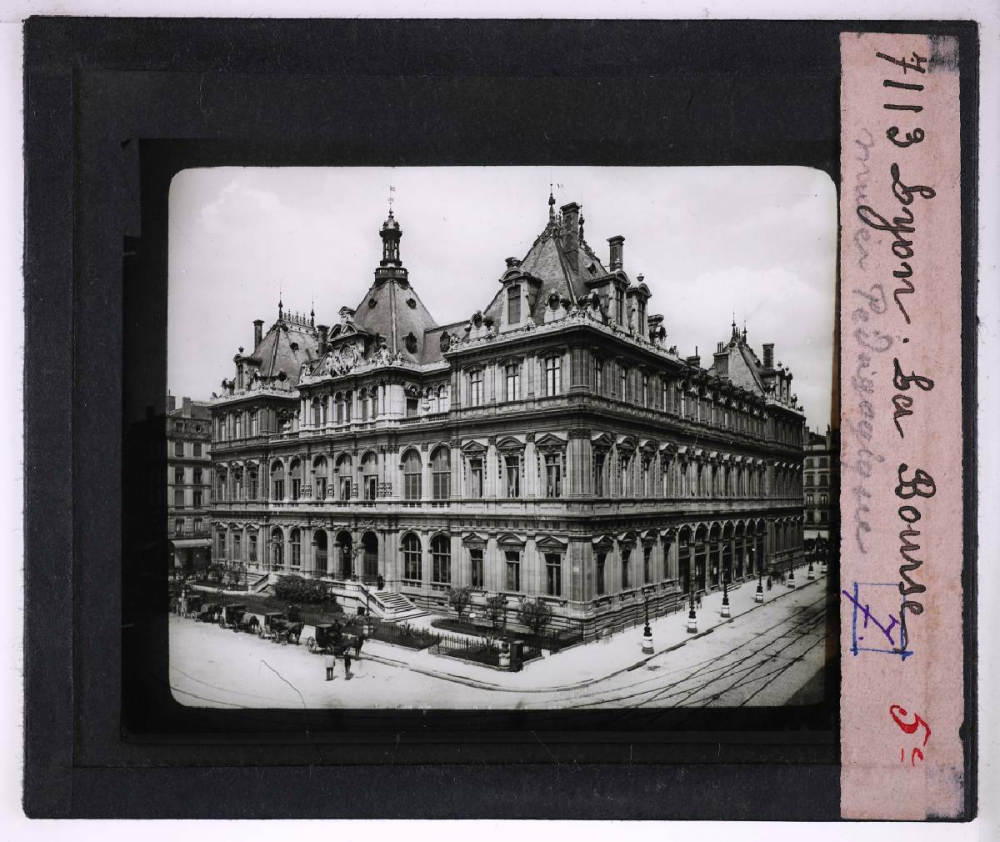 7113 Lyon. La Bourse
5c
musée Pédagogique
7.